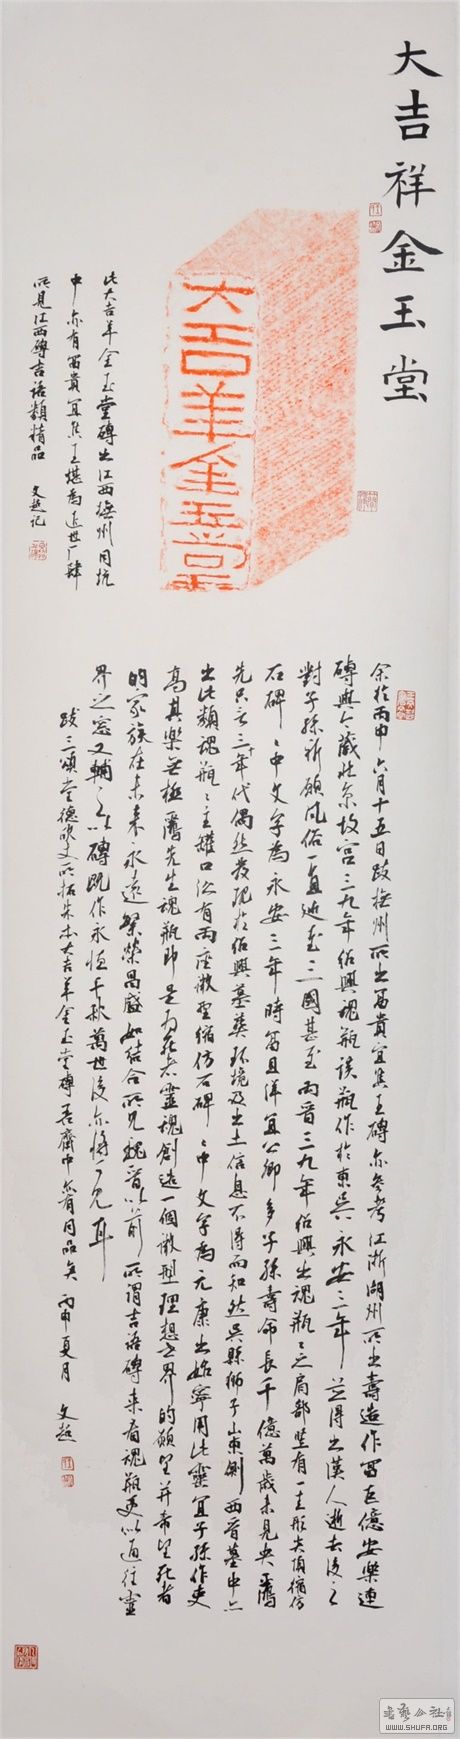 大吉祥金玉堂
大吉羊金玉堂
此大吉羊金玉堂磚出江西撫州同坑
中亦有富貴宜侯王堪為近世廠肆
所見江西磚吉語類精品 文超記
余於丙申六月十五日跋撫州所出富貴宜侯王磚亦參考江浙湖州所出壽造作富巨億安樂連
磚與今藏北京故宮三九年紹興魂瓶該瓶作於東吳永安三年 得出漢人逝去後之
對子孫祈願風俗一直延至三國甚至兩晉三九年紹興出魂瓶之肩部堅有一圭形尖頂縮仿
石碑碑中文字為永安三年時富且洋宜公卿多子孫壽命長千億萬歲未見央
先只言三十年代偶然發現於紹興墓葬環境及出土信息不得而知然吳縣獅子山東側西晉墓中亦
出此類魂瓶瓶主罐口沿有兩座微型縮仿石碑碑中文字為元康出始寧用此靈宜子孫作吏
高其樂無極 先生魂瓶即是為死者靈魂創造一個微型理想世界的願望并希望死者
的家族在未來永遠繁榮昌盛如結合所見魏晉以前所謂吉語磚來看魂瓶更似通往靈
界之窓又輔之以磚既作永恒千秋萬世後亦將可見耳
跋三頌堂德 丈所拓朱本大吉羊金玉堂磚吾齋中亦有同品矣 丙申夏月 文超
書藝公社
WWW.SHUFA.ORG